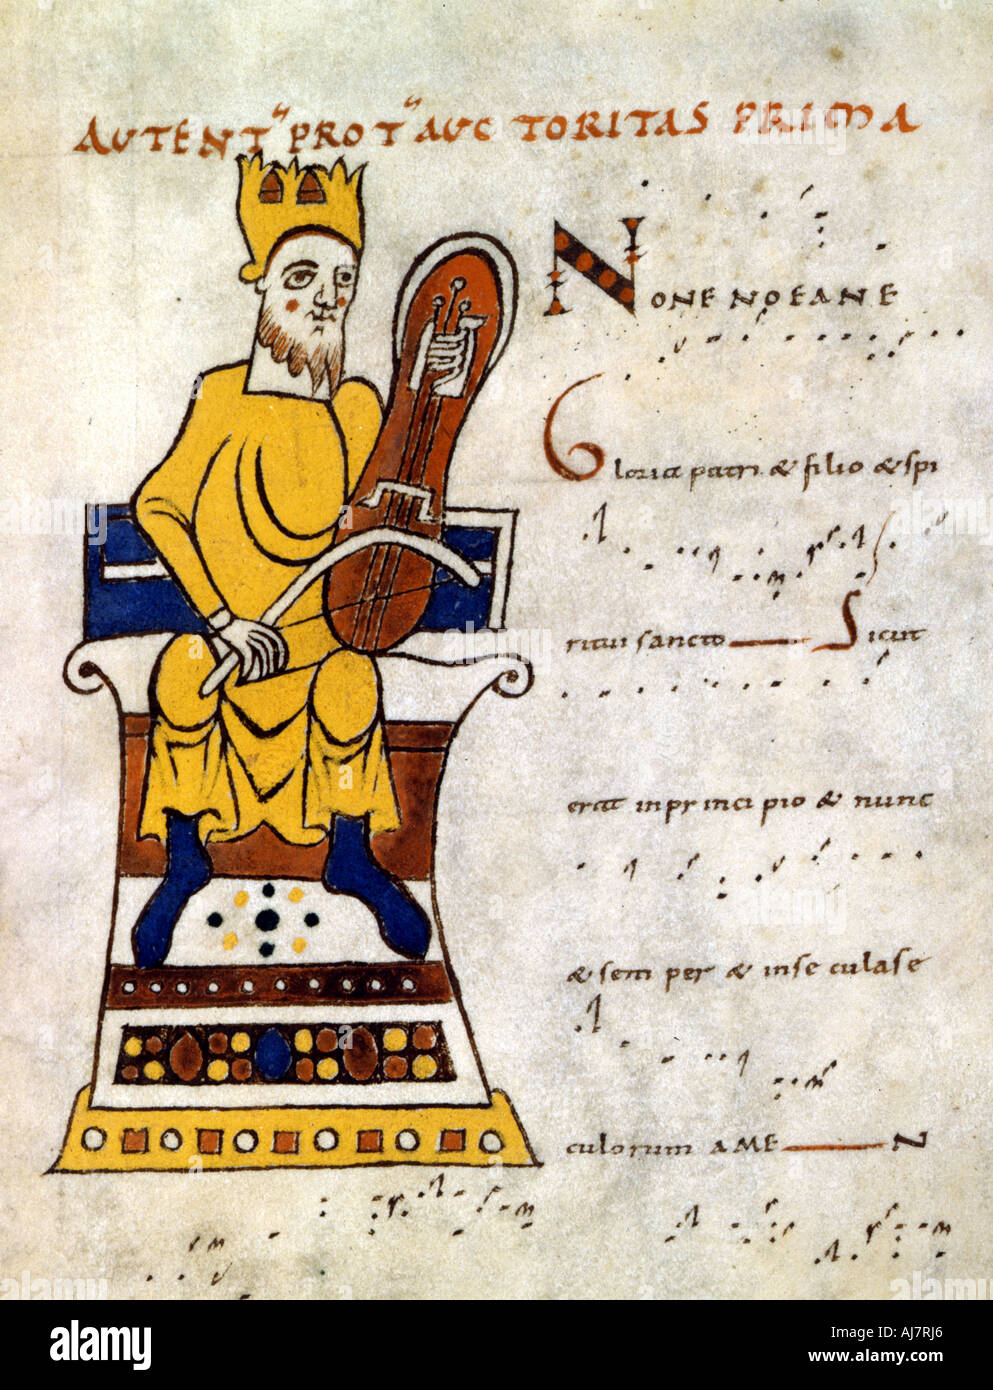 AUTENT᷒ PROT᷒ AUCTORITAS PRIMA
NONENOEANE
Gloria patri & filio & spi
ritui sancto Sicut
erat inprincipio & nunc
& semper & inseculase
culorum AMEN
alamy
Image ID: AJ7RJ6
www.alamy.com